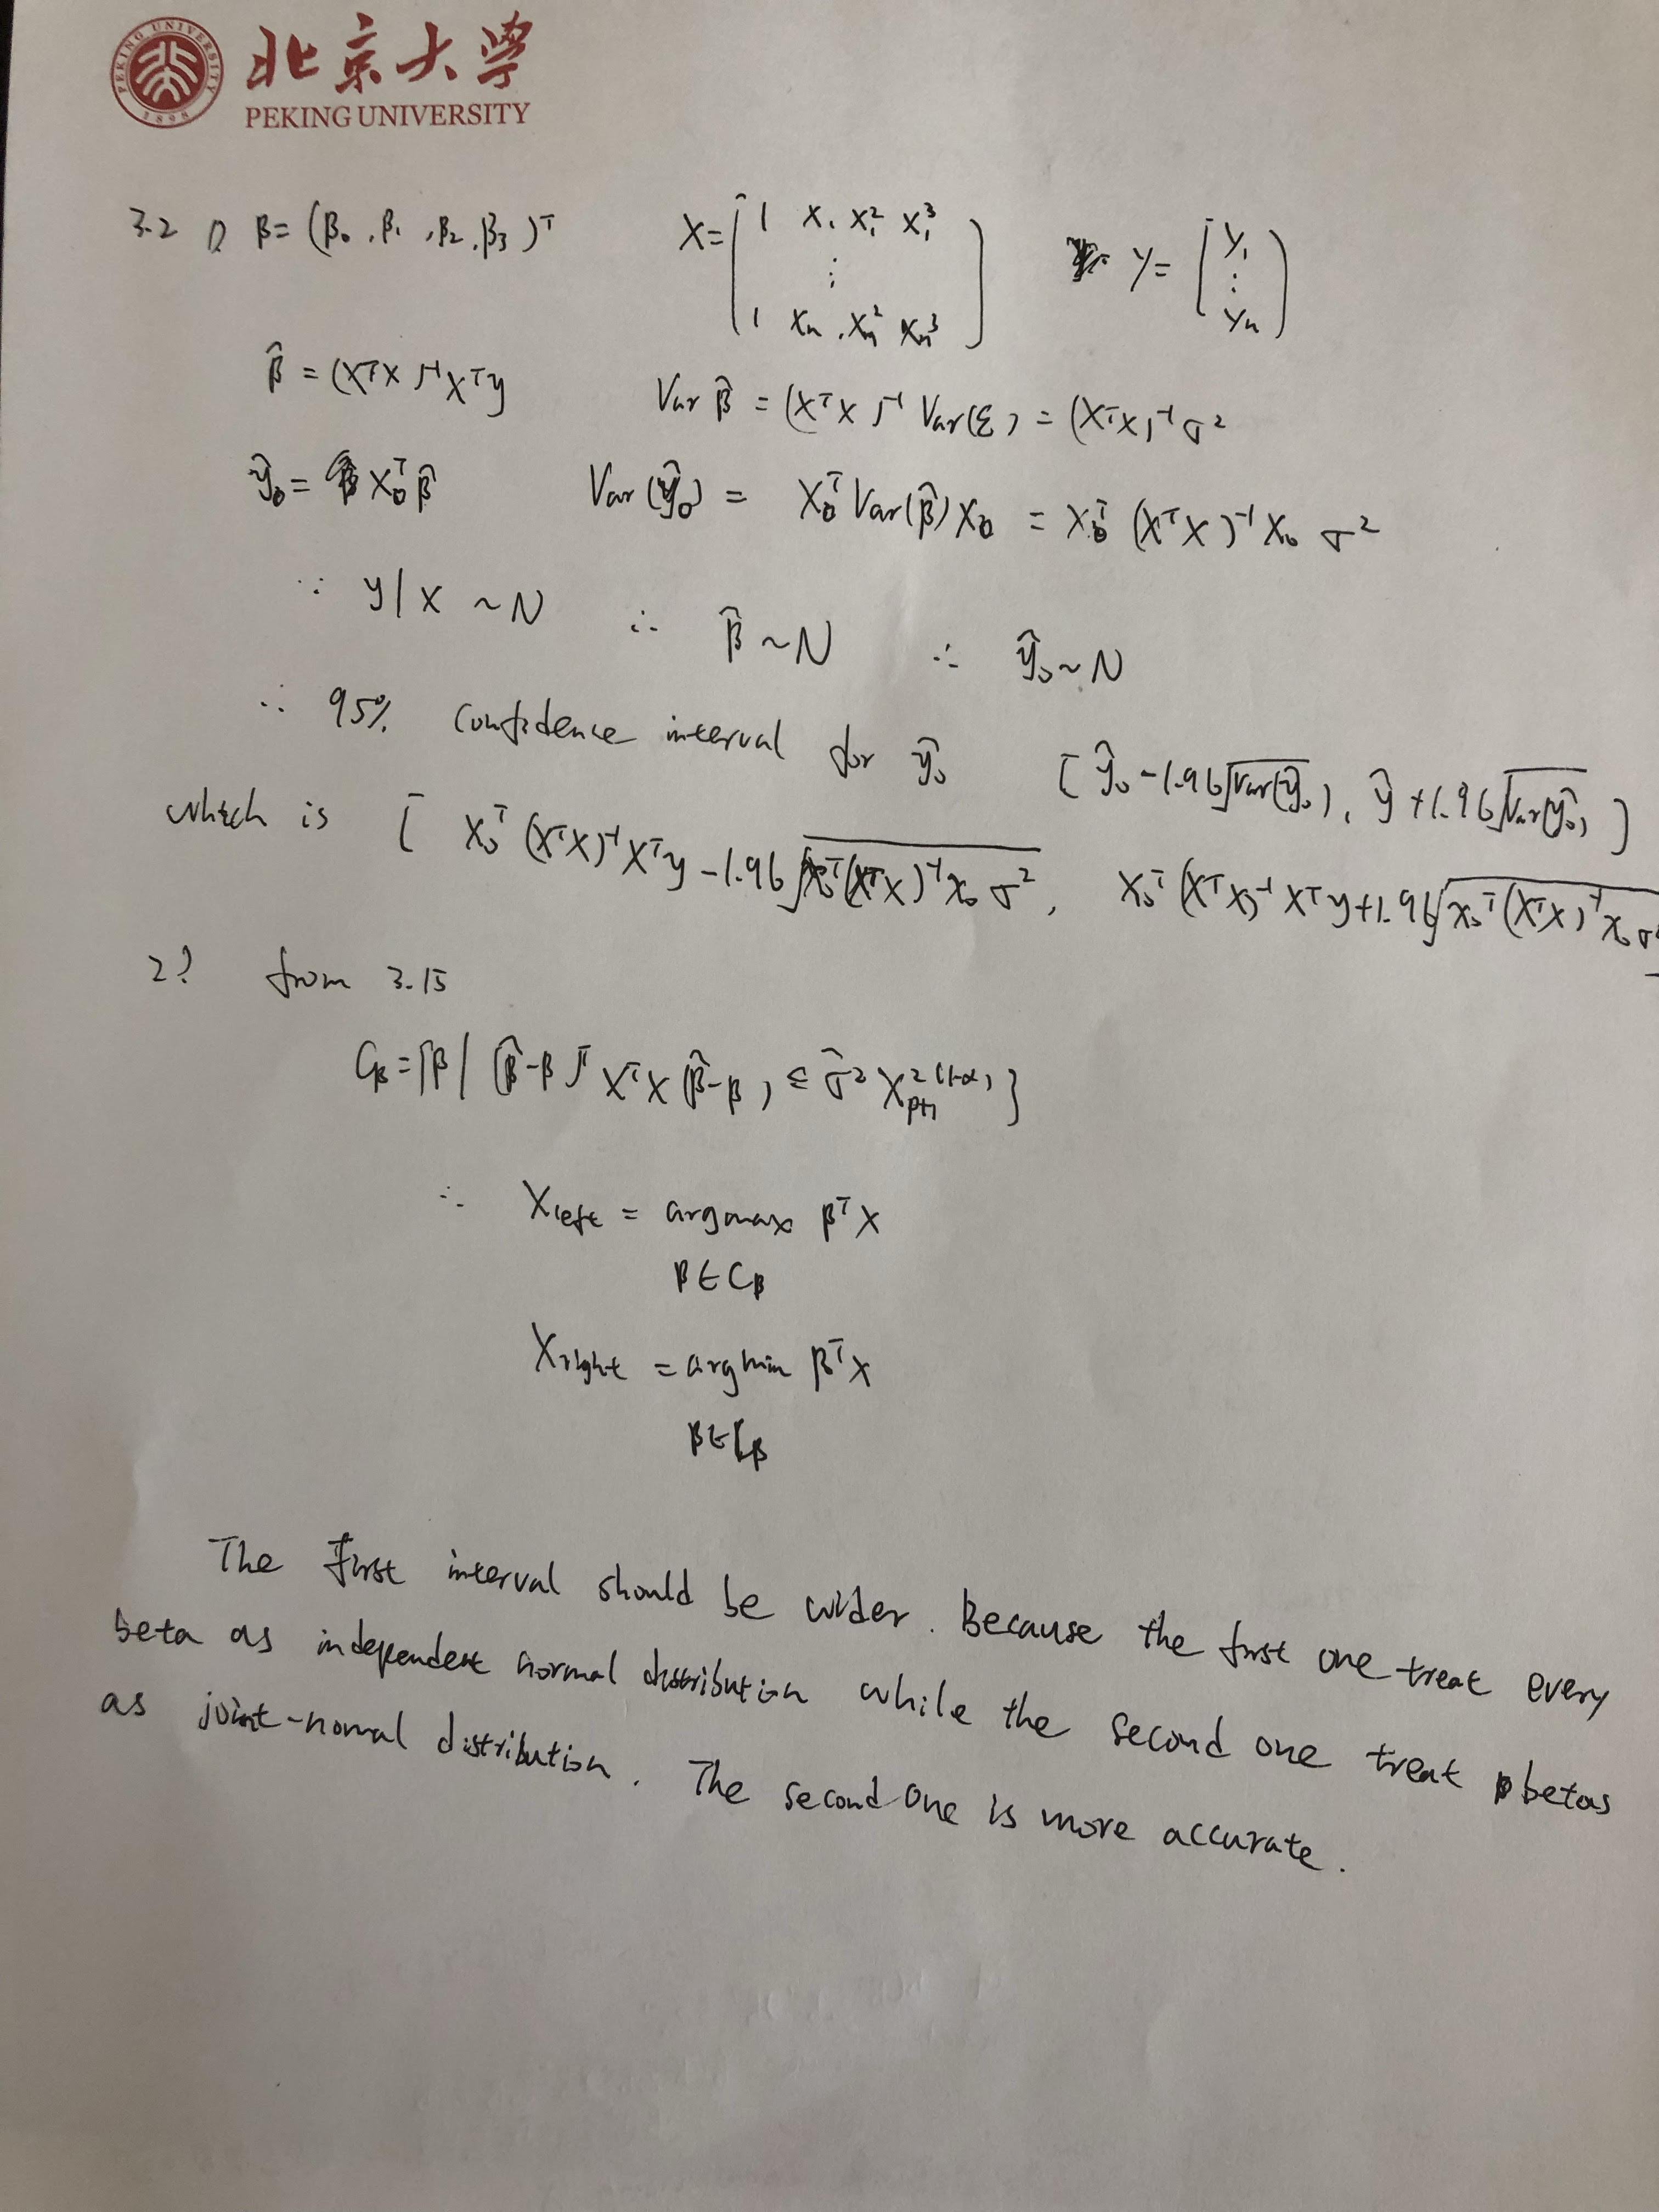 北京大学
PEKING UNIVERSITY
PEKING UNIVERSITY
1898
3.2 1) β = (β₀, β₁, β₂, β₃)ᵀ X = [1 x₁ x₁² x₁³ ⋮ 1 xₙ xₙ² xₙ³] Y = [y₁ ⋮ yₙ]
β̂ = (XᵀX)⁻¹Xᵀy Var β̂ = (XᵀX)⁻¹ Var(ε) = (XᵀX)⁻¹σ²
ŷ₀ = X₀ᵀβ̂ Var(ŷ₀) = X₀ᵀ Var(β̂) X₀ = X₀ᵀ (XᵀX)⁻¹ X₀ σ²
∵ y|X ~ N ∴ β̂ ~ N ∴ ŷ₀ ~ N
∴ 95% confidence interval for ŷ₀ [ŷ₀ - 1.96√Var(ŷ₀), ŷ + 1.96√Var(ŷ₀)]
which is [X₀ᵀ(XᵀX)⁻¹Xᵀy - 1.96√x₀ᵀ(XᵀX)⁻¹x₀σ², X₀ᵀ(XᵀX)⁻¹Xᵀy + 1.96√x₀ᵀ(XᵀX)⁻¹x₀σ²
2) from 3.15
Cβ = {β | (β̂-β)ᵀXᵀX(β̂-β) ≤ σ̂² χ²ₚ₊₁⁽¹⁻ᵅ⁾}
∴ Xleft = argmax βᵀX
β∈Cβ
Xright = argmin βᵀX
β∈Cβ
The first interval should be wider. Because the first one treat every
beta as independent normal distribution while the second one treat betas
as joint-normal distribution. The second one is more accurate.